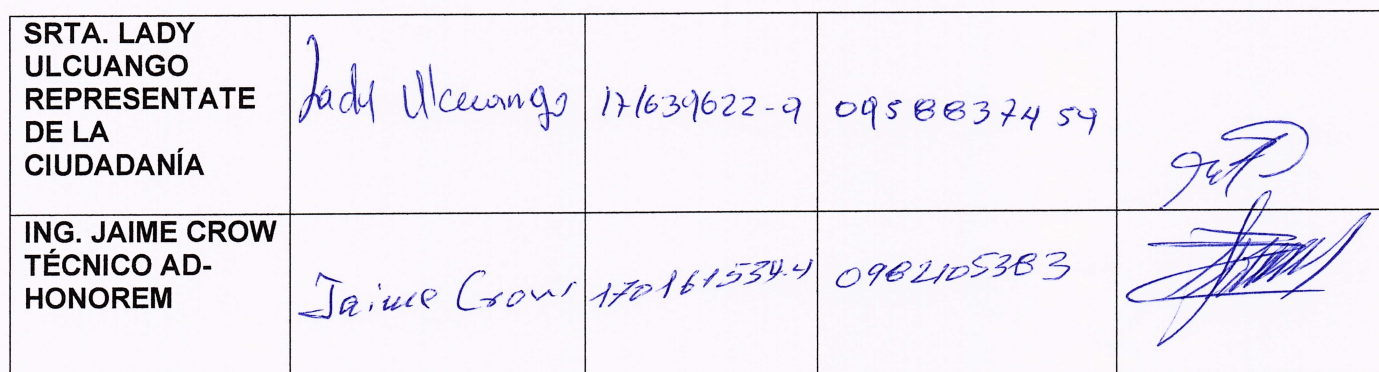 SRTA. LADY
ULCUANGO
REPRESENTATE
DE LA
CIUDADANÍA
Lady Ulcuango 171639622-9 0958837459
ING. JAIME CROW
TÉCNICO AD-
HONOREM
Jaime Crow 170161534-4 0982105383